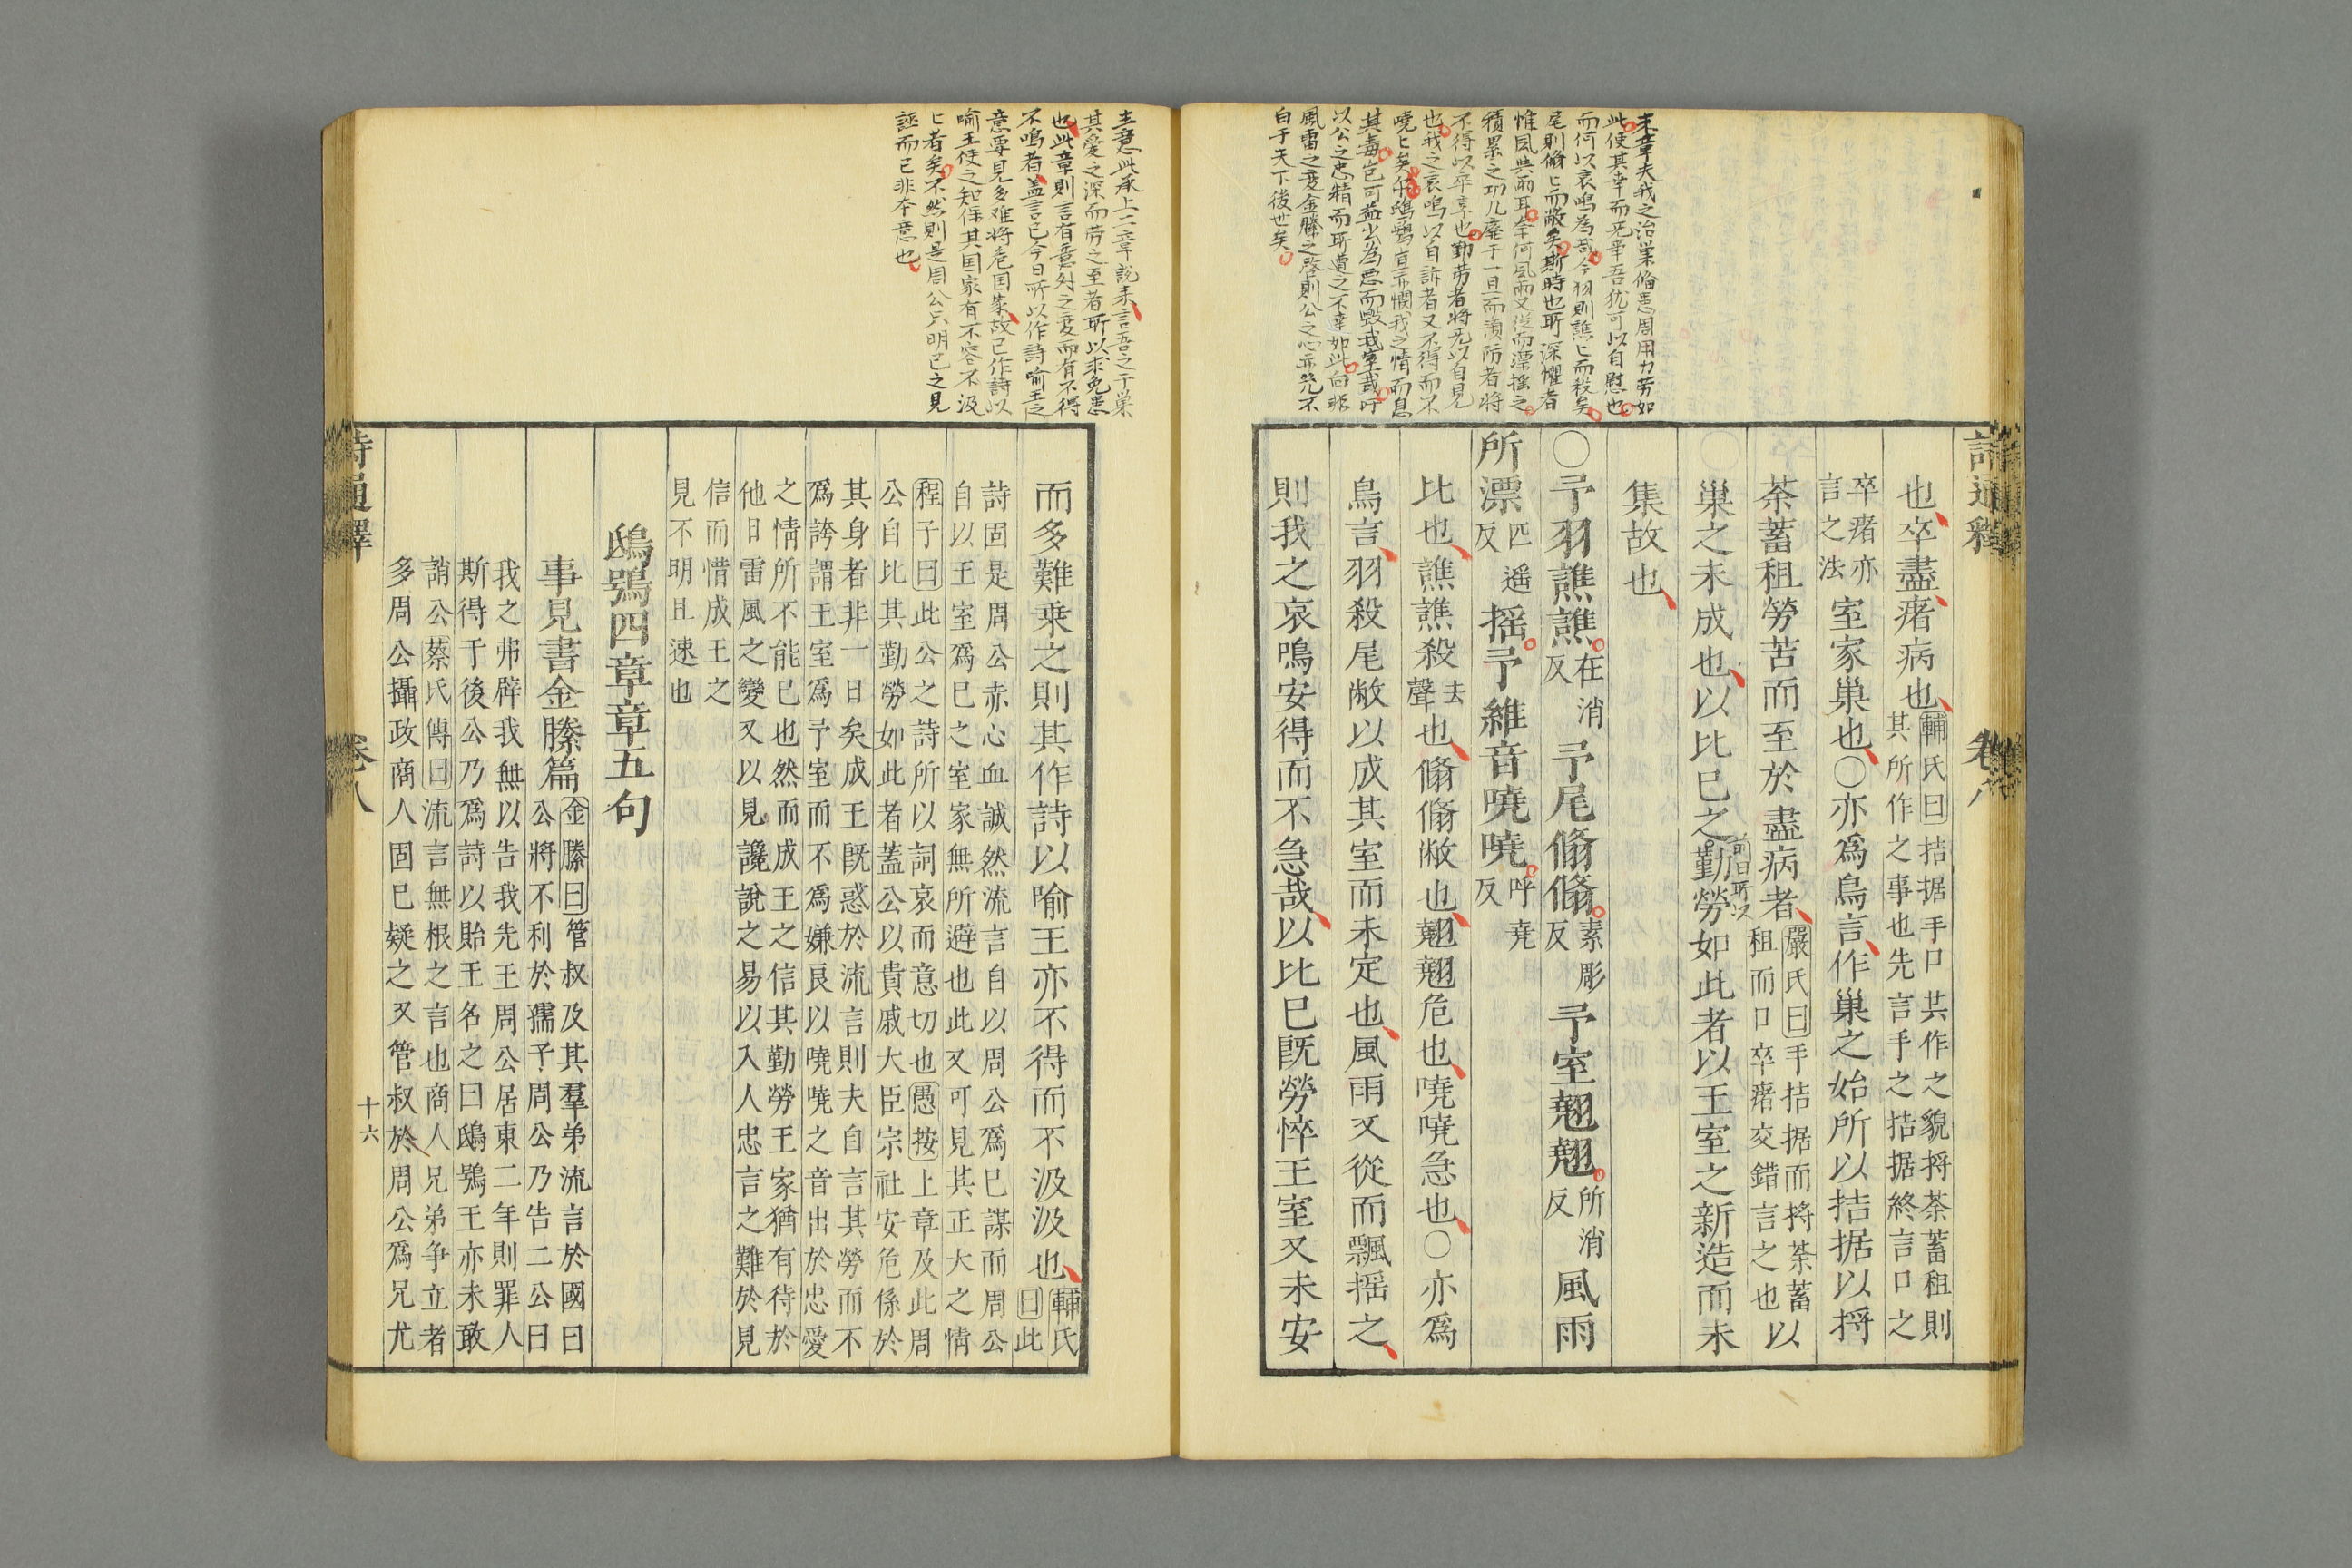 末章夫我之治巢脩患周用力劳如
此使其幸而无事吾犹可以自慰也
而何以哀鳴為哉今羽則譙〻而殺矣
尾則翛〻而敝矣斯時也所深懼者
惟風與雨耳奈何風雨又從而漂搖之
積累之功几廢于一旦而預防者將
不得以卒享也勤劳者將无以自見
也我之哀鳴以自訴者又不得而不
嘵〻矣
其毒豈可益出為惡而毀我室哉吁
以公之忠精而所遭之不幸如此向非
風雷之变金縢之啓則公之心亦㷡不
白于天下後世矣
詩通釋
卷八
也卒盡瘏病也輔氏曰拮据手口共作之貌捋荼蓄租則
其所作之事也先言手之拮据終言口之
卒瘏亦
言之法
室家巢也○亦爲鳥言作巢之始所以拮据以捋
荼蓄租勞苦而至於盡病者嚴氏曰手拮据而捋荼蓄以
租而口卒瘏交錯言之也
巢之未成也以比已之勤勞如此者以王室之新造而未
前日所以
集故也
○予羽譙譙在消反予尾翛翛素彫反予室翹翹所消反風雨
所漂匹遥反摇予維音嘵嘵呼堯反
比也譙譙殺去聲也翛翛敝也翹翹危也嘵嘵急也○亦爲
鳥言羽殺尾敝以成其室而未定也風雨又從而飄摇之
則我之哀鳴安得而不急哉以比已既勞悴王室又未安
主意此承上二章說来言吾之于巢
其愛之深而劳之至者所以求免患
也此章則言有意外之变而有不得
不鳴者盖言已今日所以作詩喻王之
意要見多难將危国家故已作詩以
喻王使之知保其国家有不容不汲
〻者矣不然則是周公只明已之見
誣而已非本意也
而多難乗之則其作詩以喻王亦不得而不汲汲也輔氏
曰此
詩固是周公赤心血誠然流言自以周公爲已謀而周公
自以王室爲已之室家無所避也此又可見其正大之情
程子曰此公之詩所以詞哀而意切也愚按上章及此周
公自比其勤勞如此者蓋公以貴戚大臣宗社安危係於
其身者非一日矣成王既惑於流言則夫自言其勞而不
爲誇謂王室爲予室而不爲嫌良以嘵嘵之音出於忠愛
之情所不能已也然而成王之信其勤勞王家猶有待於
他日雷風之變又以見讒說之易以入人忠言之難於見
信而惜成王之
見不明且速也
鴟鴞四章章五句
事見書金縢篇金縢曰管叔及其羣弟流言於國曰
公將不利於孺子周公乃告二公曰
我之弗辟我無以告我先王周公居東二年則罪人
斯得于後公乃爲詩以貽王名之曰鴟鴞王亦未敢
誚公蔡氏傳曰流言無根之言也商人兄弟争立者
多周公攝政商人固巳疑之又管叔於周公爲兄尤
詩通釋
卷八
十六